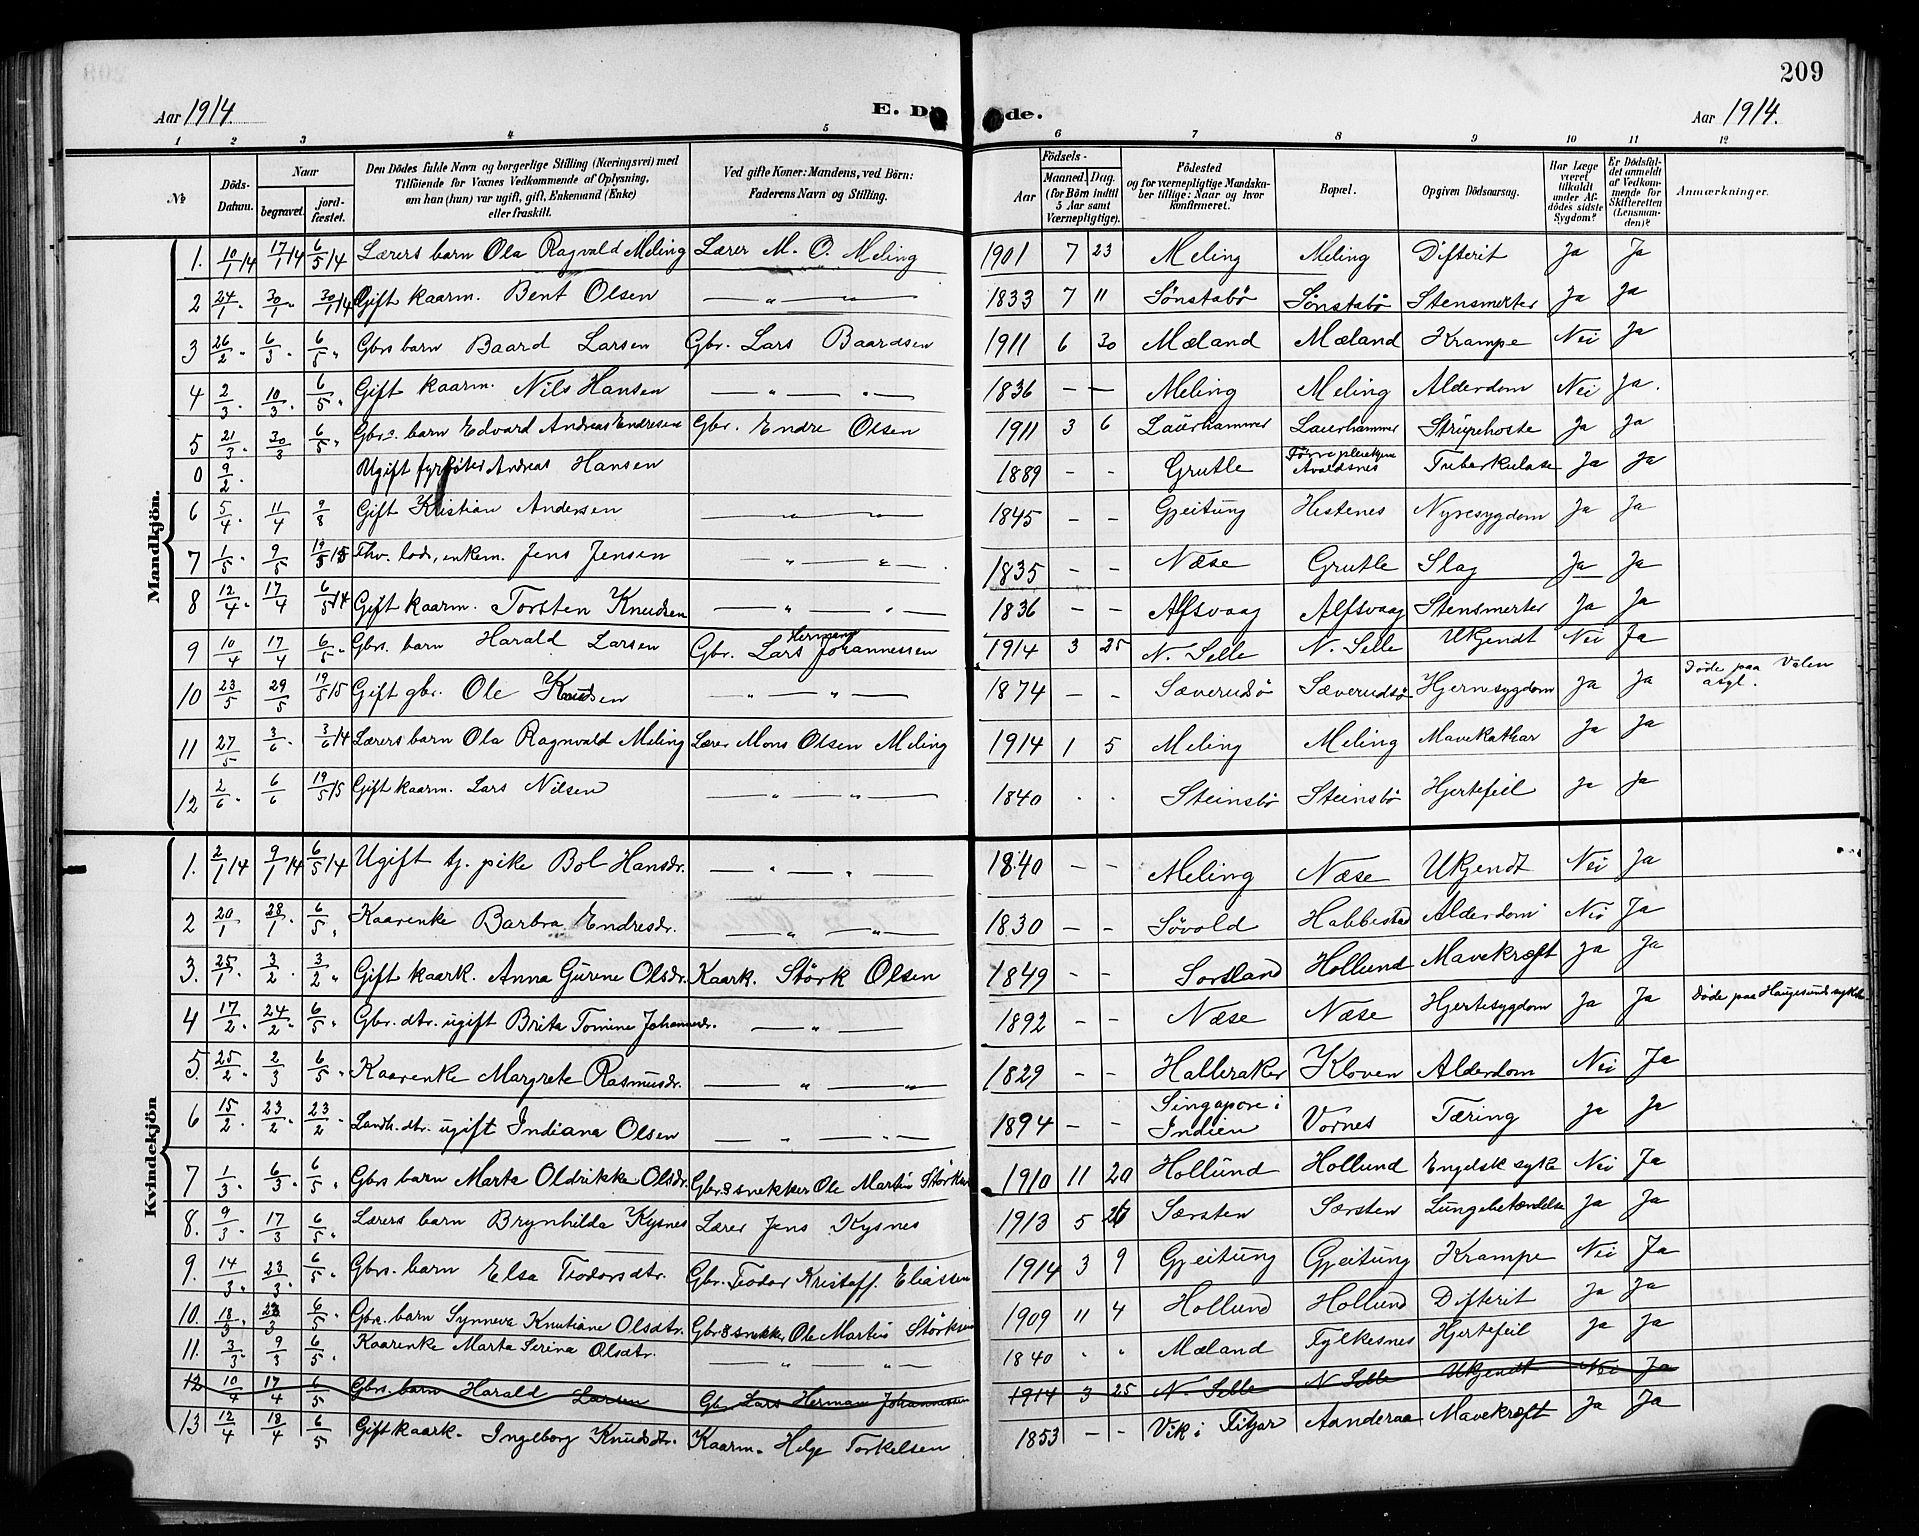 209
Aar 1914. E. D de. Aar 1914.
1 2 3 4 5 6 7 8 9 10 11 12
№ Döds-Datum. Naar begravet. jord-fæstet. Den Dödes fulde Navn og borgerlige Stilling (Næringsvei) med Tilföiende for Voxnes Vedkommende af Oplysning, om han (hun) var ugift, gift, Enkemand (Enke) eller fraskilt. Ved gifte Koner: Mandens, ved Börn: Faderens Navn og Stilling. Födsels- Aar Maaned. Dag. (for Børn indtil 5 Aar samt Værnepligtige). Födested og for værnepligtige Mandskaber tillige: Naar og hvor konfirmeret. Bopæl. Opgiven Dödsaarsag. Har Læge været tilkaldt under Afdödes sidste Sygdom? Er Dödsfaldet anmeldt af Vedkommende for Skifteretten (Lensmanden)? Anmærkninger.
Mandkjön.
1. 10/1 14 17/1 14 6/5 14 Lærers barn Ola Ragvald Meling Lærer M. O. Meling 1901 7 23 Meling Meling Difterit Ja Ja
2 24/1 " 30/1 " 30/1 14 Gift kaarm. Bent Olsen — " — " — 1833 7 11 Sönstabö Sönstabö Stensmerter Ja Ja
3 26/2 " 6/3 " 6/5 " Gbrs barn Baard Larsen Gbr. Lars Baardsen 1911 6 30 Mæland Mæland Krampe Nei Ja
4 2/3 " 10/3 " 6/5 " Gift kaarm. Nils Hansen — " — " — 1836 – – Meling Meling Alderdom Nei Ja.
5 21/3 " 30/3 6/5 " Gbr.s. barn Edvard Andreas Endresen Gbr. Endre Olsen 1911 3 6 Laurhammer Laurhammer Strupehoste Ja Ja
0 9/2 " Ugift Andreas Hansen 1889 – – Grutle Avaldsnes Tuberkulose Ja Ja
6 5/4 " 11/4 9/8 Gift Kristian Andersen — " — " — 1845 – – Gjeitung Hestenes Nyresygdom Ja Ja
7 1/5 " 9/5 19/5 15 Fhv. lods, enkem. Jens Jensen " — " — 1835 – – Næse Grutle Slag Ja Ja
8 12/4 " 17/4 6/5 14 Gift kaarm. Torsten Knudsen — " — " — 1836 – – Alfsvaag Alfsvaag Stensmerter Ja Ja
9 10/4 17/4 6/5 " Gbrs. barn Harald Larsen Gbr. Lars Herman Johannessen 1914 3 25 N. Selle N. Selle Ukjendt Nei Ja
10 23/5 29/5 19/5 15 Gift gbr. Ole Knudsen — " — " — 1874 – – Sæverudsö Sæverudsö Hjernesygdom Ja Ja Döde paa Valen asyl.
11 27/5 3/6 " 3/6 14 Lærers barn Ola Ragnvald Meling Lærer Mons Olsen Meling 1914 1 5 Meling Meling Mavekathar Ja Ja
12 2/6 " 6/6 19/5 15 Gift kaarm. Lars Nilsen — " — " — 1840 . . Steinsbö Steinsbö Hjertefeil Ja Ja
Kvindekjön
1. 2/1 14 9/1 14 6/5 14 Ugift tj. pike Bol Hansdr. — " — " — 1840 – – Meling Næse Ukjendt Nei Ja
2 20/1 28/1 6/5 " Kaarenke Barbra Endresdr. — " — " — 1830 – – Sövold Habbestad Alderdom Nei Ja
3. 25/1 " 3/2 " 3/2 " Gift kaark. Anna Gurine Olsdr. Kaark. Störk Olsen 1849 – – Sortland Hollund Mavekræft Ja Ja
4 17/2 " 24/2 " 6/5 " Gbr. dtr. ugift Brita Tomine Johannesdr. — " — 1892 – – Næse Næse Hjertesygdom Ja Ja Döde paa Haugesunds sykeh.
5. 25/2 " 2/3 6/5 " Kaarenke Margrete Rasmusdr. — " — " 1829 – – Halleraker Kloven Alderdom Nei Ja
6 15/2 " 23/2 " 23/2 " Landh. dtr. ugift Indiana Olsen — " — " — 1894 – – Singapore i Indien Vornes Tæring Ja Ja
7 1/3 " 6/3 " 6/5 " Gbrs barn Marta Oldrikke Olsdr. Gbr. & snekker Ole Martin Störksen 1910 11 20 Hollund Hollund Engelsk syke Nei Ja
8. 9/3 " 17/3 6/5 " Lærers barn Brynhilda Kysnes Lærer Jens Kysnes 1913 5 26 Særsten Særsten Lungebetændelse Ja Ja
9. 14/3 " 23/3 " 6/5 " Gbrs. barn Elsa Teodorsdtr. Gbr. Teodor Kristoff. Eliassen 1914 3 9 Gjeitung Gjeitung Krampe Nei Ja
10. 18/3 " 23/3 6/5 " Gbrs. barn Synneva Knutiane Olsdtr. Gbr & snekker Ole Martin Störksen 1909 11 4 Hollund Hollund Difterit Ja Ja
11. 3/3 " 9/3 6/5 " Kaarenke Marta Serina Olsdtr. — " — " — 1840 " " Mæland Fylkesnes Hjertefeil Ja Ja
12 10/4 17/4 6/5 Gbrs. barn Harald Larsen Gbr. Lars Herman Johannessen 1914 3 25 N. Selle N Selle Ukjendt Nei Ja
13 12/4 18/4 6/5 Gift kaark. Ingeborg Knudsdtr. Kaarm. Helge Torkelsen 1853 – – Vik i Fitjar Aanderaa Mavekræft Ja Ja